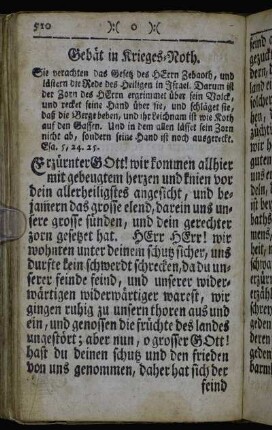 510 ):( o ):(
Gebät in Krieges-Noth.
Sie verachten das Gesetz des HErrn Zebaoth, und
lästern die Rede des Heiligen in Israel. Darum ist
der Zorn des HErrn ergrimmet über sein Volck,
und recket seine Hand über sie, und schläget sie,
daß die Berge beben, und ihr Leichnam ist wie Koth
auf den Gassen. Und in dem allen lässet sein Zorn
nicht ab, sondern seine Hand ist noch ausgereckt.
Esa. 5, 24. 25.
ErzürnterGOtt! wir kommen allhier
mit gebeugtem herzen und knien vor
dein allerheiligstes angesicht, und be-
jamern das grosse elend, darein uns un-
sere grosse sünden, und dein gerechter
zorn gesetzt hat. HErr HErr! wir
wohnten unter deinem schutz sicher, uns
durfte kein schwerdt schrecken, da du un-
serer feinde feind, und unserer wider-
wärtigen widerwärtiger warest, wir
gingen ruhig zu unsern thoren aus und
ein, und genossen die früchte des landes
ungestört; aber nun, o grosser GOtt!
hast du deinen schutz und den frieden
von uns genommen, daher hat sich der
feind